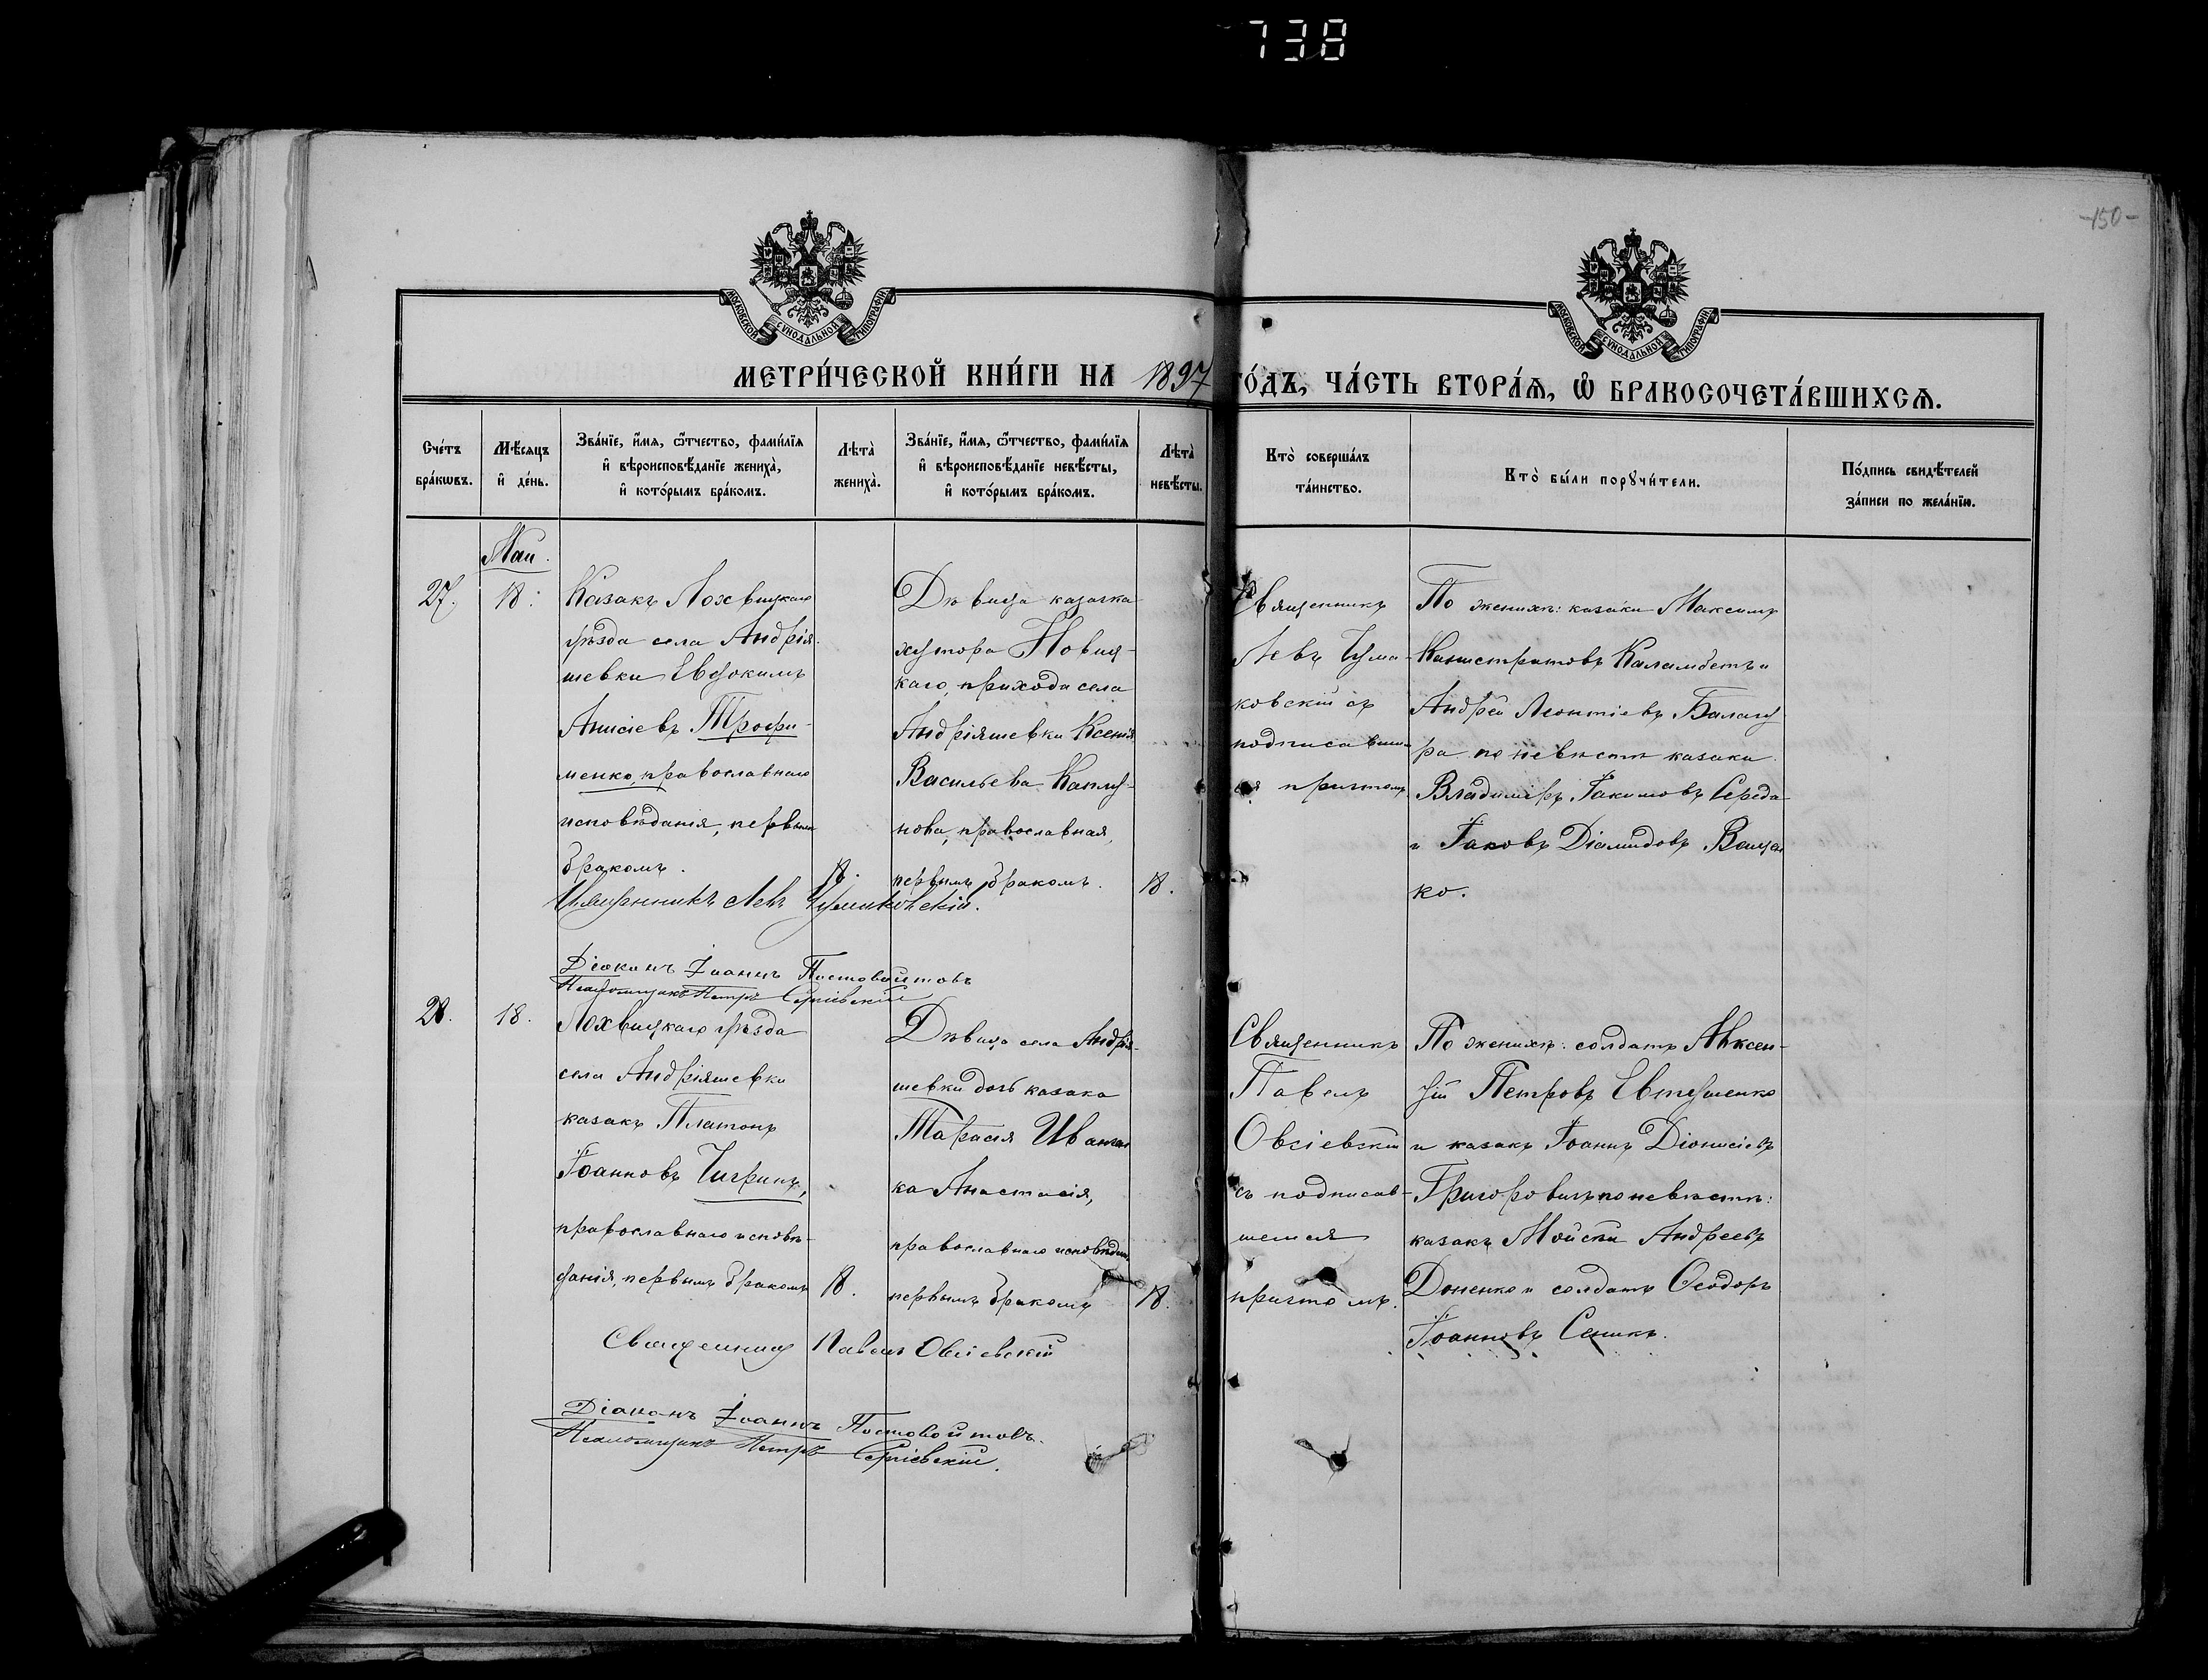 738
-150-
МОСКОВСКОЙ СѴНОДАЛЬНОЙ ТИПОГРАФІИ
МОСКОВСКОЙ СѴНОДАЛЬНОЙ ТИПОГРАФІИ
МЕТРИ́ЧЕСКОЙ КНИ́ГИ НА 1897 ГО́ДЪ, ЧА́СТЬ ВТОРА́Ѧ, Ѽ БРАКОСОЧЕТА́ВШИХСѦ.
Сче́тъ
бра́кѡвъ.
Мѣ́сяцъ
и҆ де́нь.
Зва́нїе, и҆́мя, ѻ҆́тчество, фами́лїя
и҆ вѣроисповѣ́данїе жениха̀,
и҆ кото́рымъ бра́комъ.
Лѣта̀
жениха̀.
Зва́нїе, и҆́мя, ѻ҆́тчество, фами́лїя
и҆ вѣроисповѣ́данїе невѣ́сты,
и҆ кото́рымъ бра́комъ.
Лѣта̀
невѣ́сты.
Кто̀ соверша́лъ
та́инство.
Кто̀ бы́ли порꙋчи́тели.
По́дпись свидѣ́телей
за́писи по жела́нїю.
Маи.
27.
18.
Казакъ Лохвицкаго
уѣзда села Андрія-
шевки Евдокимъ
Анисіевъ Трофи-
менко, православнаго
исповѣданія, первымъ
бракомъ.
18.
Дѣвица казачка
хутора Новиц-
каго, прихода села
Андріяшевки Ксенія
Васильева Каплу-
нова, православная,
первымъ бракомъ.
18.
Священникъ
Левъ Чума-
ковскій съ
подписавшим-
ся причтомъ
По женихѣ: казаки Максимъ
Калистратовъ Каламбетъ и
Андрей Леонтіевъ Балагу-
ра по невѣстѣ казаки
Владимиръ Іакимовъ Середа
и Іаковъ Діамидовъ Ващен
ко.
Священникъ Левъ Чумаковскій.
Діаконъ Іоаннъ Постовойтовъ
Псаломщикъ Петръ Сергіевскій
28.
18.
Лохвицкаго уѣзда
села Андріяшевки
казакъ Платонъ
Іоанновъ Чигринъ,
православнаго исповѣ-
данія, первымъ бракомъ
18.
Дѣвица села Андрія-
шевки дочь казака
Тарасія Иванен
ка Анастасія,
православнаго исповѣдан
первымъ бракомъ
18.
Священникъ
Павелъ
Овсіевскій
съ подписав-
шемся
причтомъ.
По женихѣ: солдатъ Авксен-
тій Петровъ Евтушенко
и казакъ Іоаннъ Діонисіевъ
Григоровичъ по невѣстѣ:
казакъ Мойсей Андреевъ
Доненко и солдатъ Ѳеодоръ
Іоанновъ Сеникъ.
Священникъ Павелъ Овсіевскій
Діаконъ Іоаннъ Постовойтовъ.
Псаломщикъ Петръ Сергіевскій.